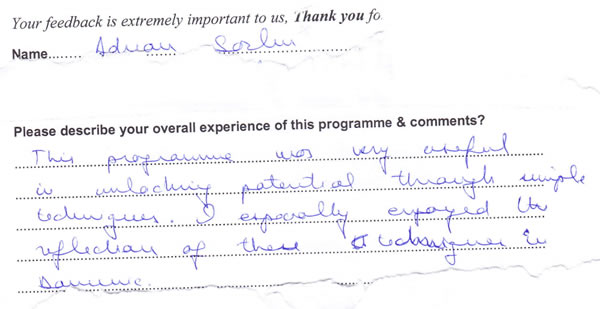 Your feedback is extremely important to us, Thank you fo
Name........ Adrian
Please describe your overall experience of this programme & comments?
This programme was very useful
in unlocking potential through simple
techniques. I especially enjoyed the
reflection of these techniques in